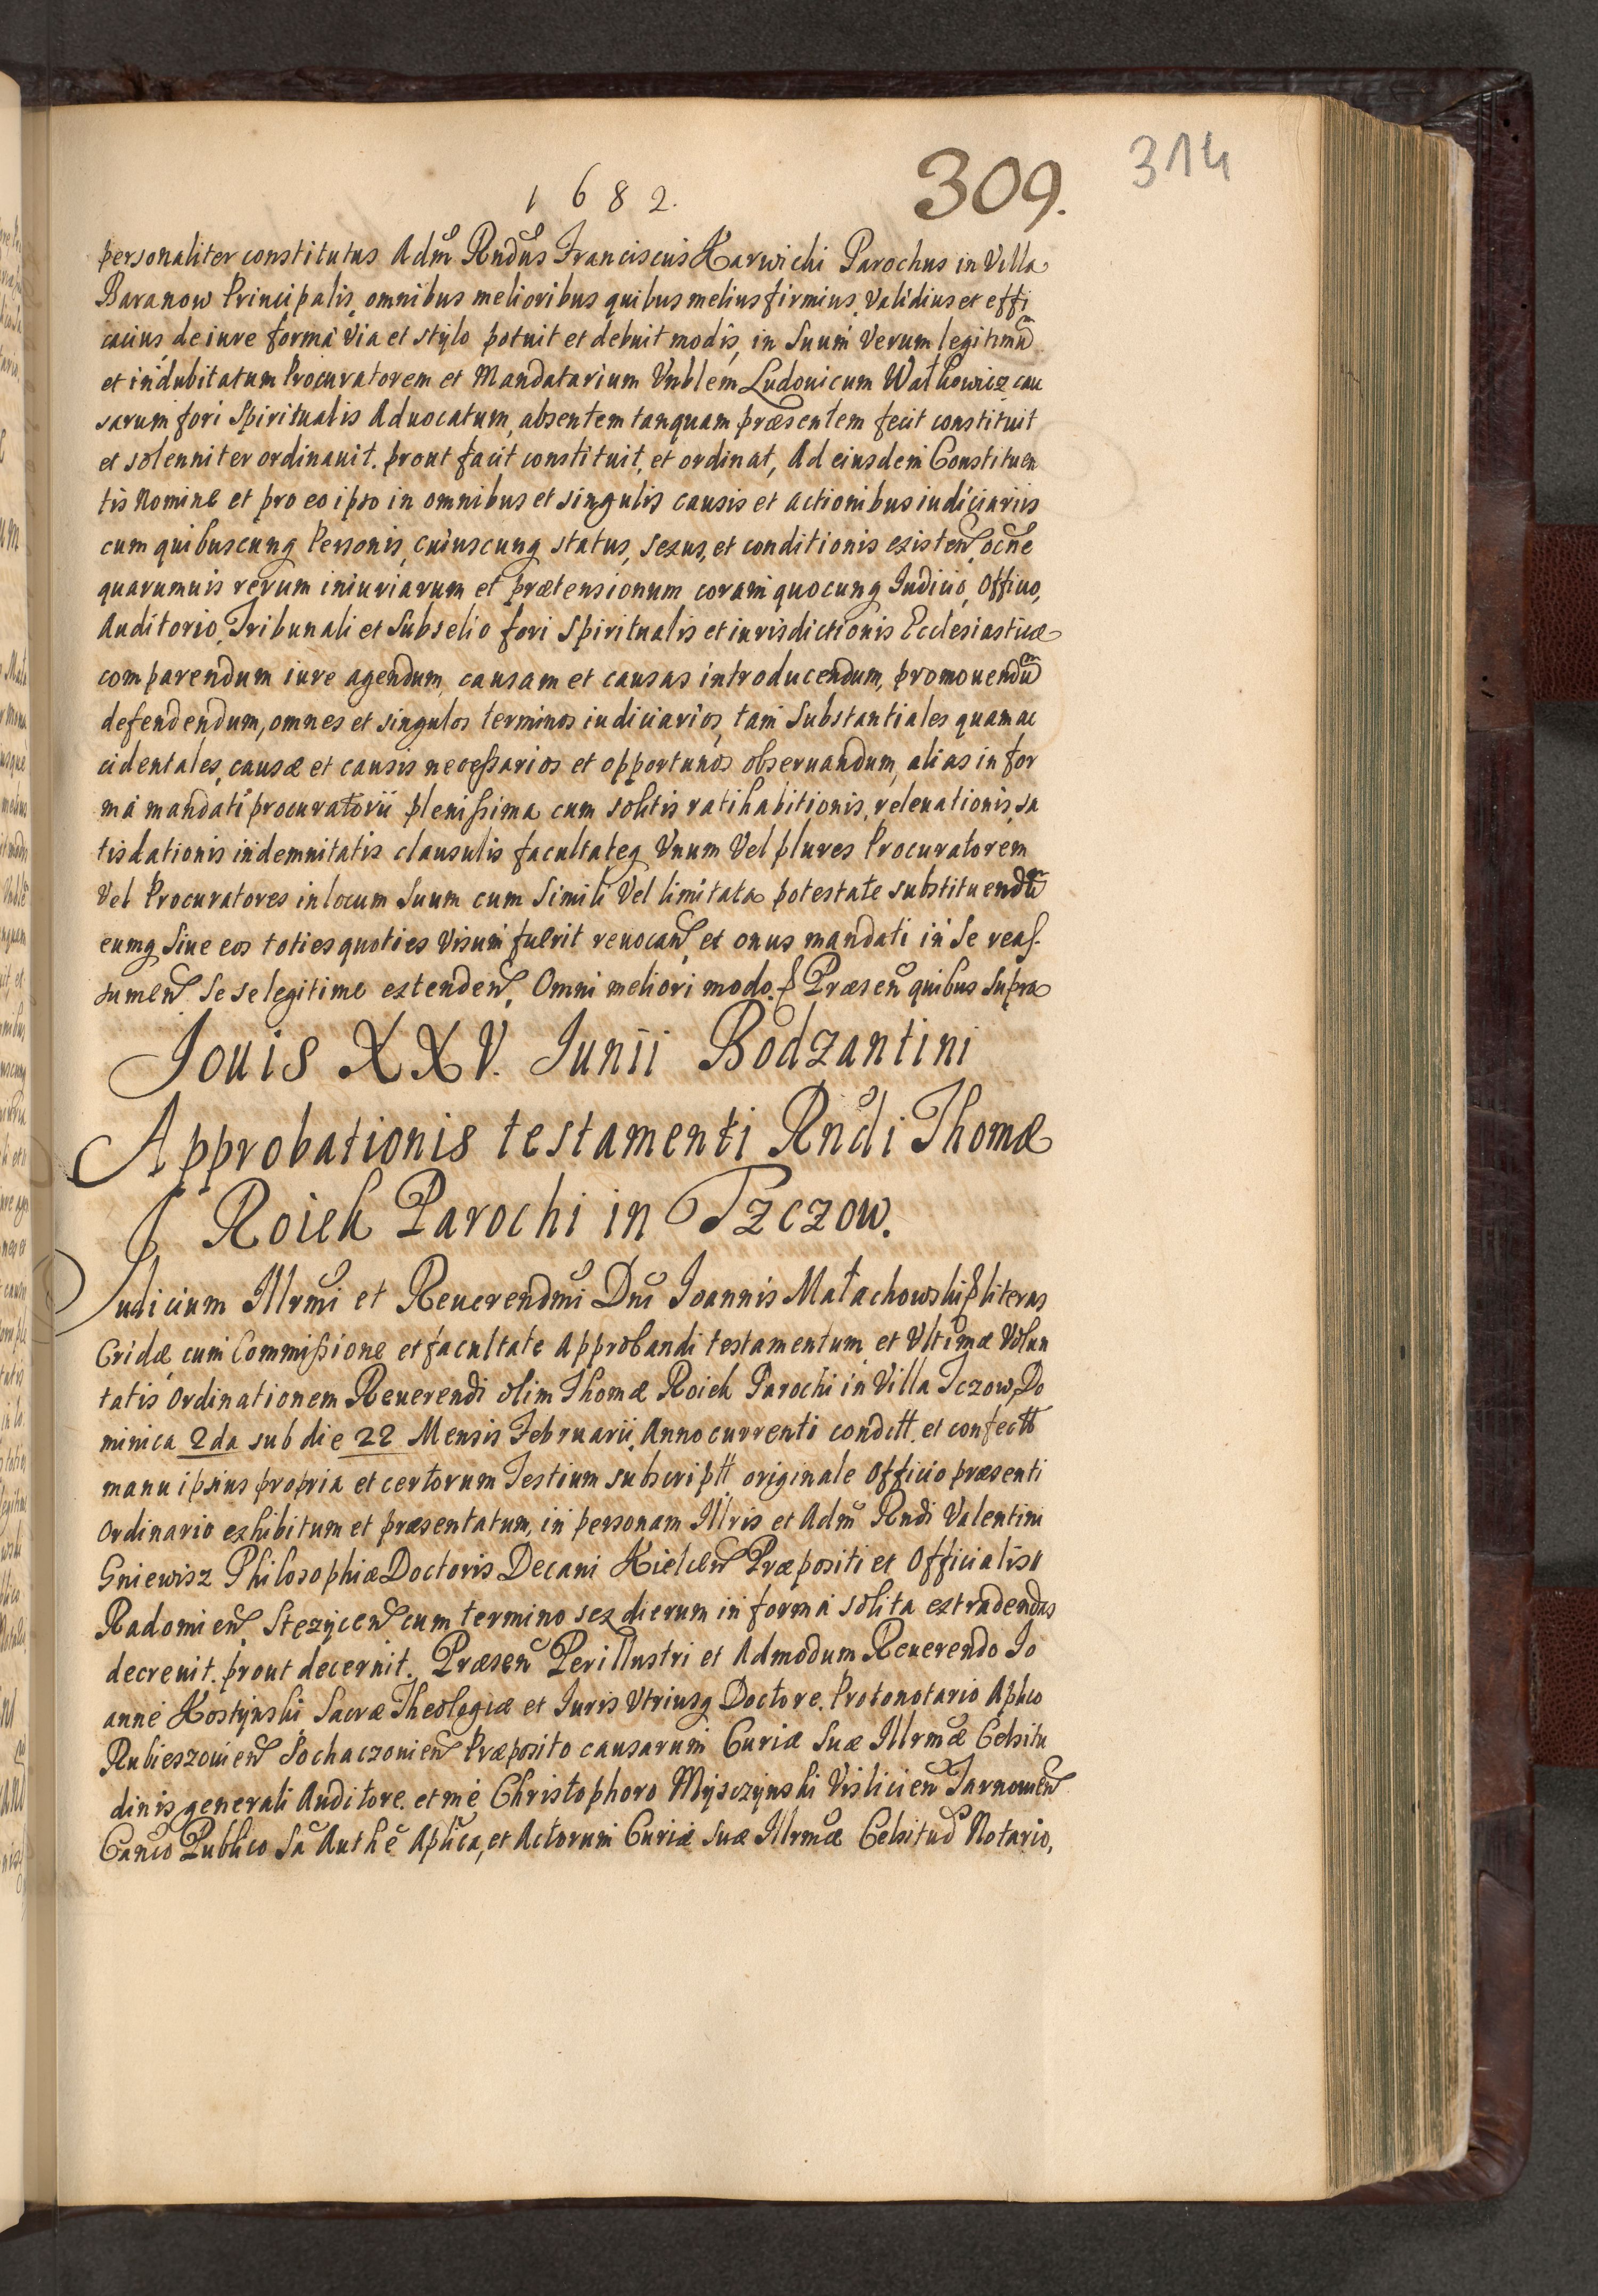 314
1682.
309.
personaliter constitutus Adm Rndus Franciscus Karwicki Parochus in Villa
Baranow Principalis, omnibus melioribus quibus melius firmius, Validius et effi
cacius de iure forma Via et stylo potuit et debuit modis, in Suum Verum legitimū
et indubitatum Procuratorem et Mandatarium Vnblem Ludouicum Wałkowicz cau
sarum fori Spiritualis Aduocatum, absentem tanquam præsentem fecit constituit
et solenniter ordinauit. prout facit constituit, et ordinat, Ad eiusdem Constituen
tis Nomine et pro eo ipso in omnibus et singulis causis et actionibus iudiciariis
cum quibuscunq Personis, cuiuscunq status, sexus, et conditionis existen̄ ocne
quarumuis rerum iniuriarum et prætensionum coram quocunq Iudicio, Officio,
Auditorio, Tribunali et Subselio fori Spiritualis et iurisdictionis Ecclesiasticæ
comparendum iure agendum, causam et causas introducendum, promouendū
defendendum, omnes et singulos terminos iudiciarios, tam Substantiales quam ac
cidentales, causæ et causis necessarios et opportunos obseruandum, alias in for
ma mandati procuratorii plenissima cum solitis ratihabitionis, releuationis, sa
tisdationis indemnitatis clausulis facultateq Vnum Vel plures Procuratorem
Vel Procuratores in locum Suum cum Simili Vel limitata potestate substituendū
eumq Siue eos toties quoties Visum fuerit reuocan̄, et onus mandati in Se reas-
sumen̄ Se se legitime extenden̄, Omni meliori modo. Præsen̄ quibus Supra
Iouis XXV. Iunii Bodzantini
Approbationis testamenti Rndi Thomæ
Roiek Parochi in Tzczow.
Iudicium Illrmi et Reuerendmi Dni Ioannis Małachowski literas
Cridæ cum Commissione et facultate Approbandi testamentum et Vltimæ Volun
tatis Ordinationem Reuerendi olim Thomæ Roiek Parochi in Villa Tczow, Do
minica 2da sub die 22 Mensis Februarii, Anno currenti condtt. et confectt
manu ipsius propria et certorum Testium subscriptt. originale Officio præsenti
Ordinario exhibitum et præsentatum, in personam Illris et Adm Rndi Valentini
Gniewisz Philosophiæ Doctoris Decani Kielcen̄ Præpositi et Officialis
Radomien̄ Stezycen̄ cum termino sex dierum in forma solita extradendas
decreuit. prout decernit. Præsen̄ Perillustri et Admodum Reuerendo Io
anne Kostynski Sacræ Theologiæ et Iuris Vtriusq Doctore. Protonotario Aplico
Rubieszouien̄ Sochaczouien̄ Præposito causarum Curiæ Suæ Illrmæ Celsitu
dinis generali Auditore. et me Christophoro Mysczynski Vislicien̄ Tarnouien̄
Canco Publico Sa Authe Aplica, et Actorum Curiæ Suæ Illrmæ Celsitud Notario,